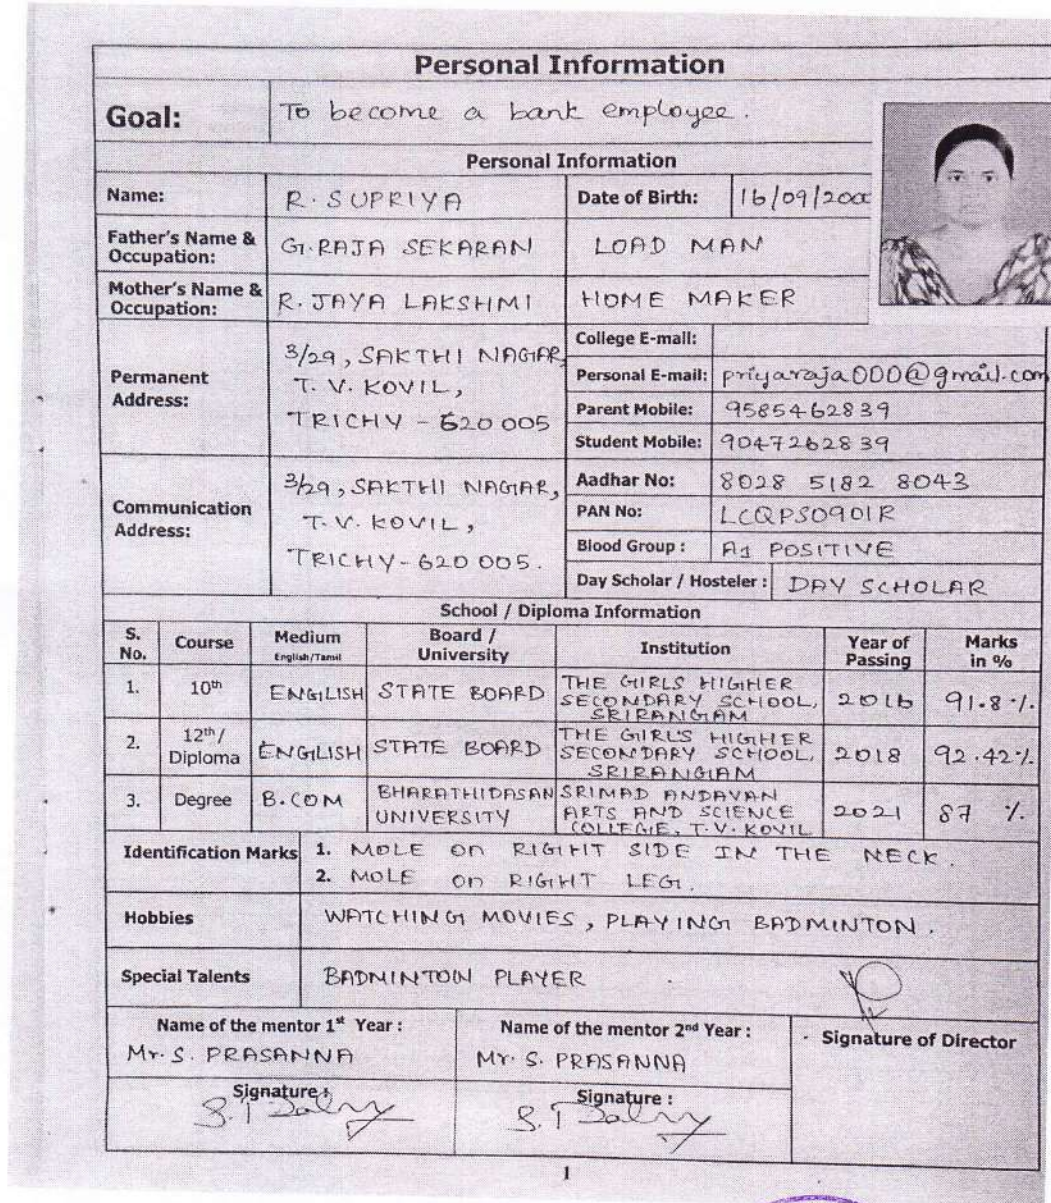 Personal Information
Goal: To become a bank employee.
Personal Information
Name: R. SUPRIYA Date of Birth: 16/09/200
Father's Name & Occupation: G. RAJA SEKARAN LOAD MAN
Mother's Name & Occupation: R. JAYA LAKSHMI HOME MAKER
Permanent Address: 3/29, SAKTHI NAGAR,
T. V. KOVIL,
TRICHY - 620 005
College E-mail:
Personal E-mail: priyaraja000@gmail.com
Parent Mobile: 9585462839
Student Mobile: 9047262839
Communication Address: 3/29, SAKTHI NAGAR,
T. V. KOVIL,
TRICHY - 620 005.
Aadhar No: 8028 5182 8043
PAN No: LCQPS0901R
Blood Group : A1 POSITIVE
Day Scholar / Hosteler : DAY SCHOLAR
School / Diploma Information
S. No. Course Medium English/Tamil Board / University Institution Year of Passing Marks in %
1. 10th ENGLISH STATE BOARD THE GIRLS HIGHER SECONDARY SCHOOL, SRIRANGAM 2016 91.8 %
2. 12th / Diploma ENGLISH STATE BOARD THE GIRL'S HIGHER SECONDARY SCHOOL, SRIRANGAM 2018 92.42 %
3. Degree B.COM BHARATHIDASAN UNIVERSITY SRIMAD ANDAVAN ARTS AND SCIENCE COLLEGE, T.V. KOVIL 2021 87 %
Identification Marks 1. MOLE on RIGHT SIDE IN THE NECK.
2. MOLE on RIGHT LEG.
Hobbies WATCHING MOVIES, PLAYING BADMINTON.
Special Talents BADMINTON PLAYER
Name of the mentor 1st Year :
Mr. S. PRASANNA
Name of the mentor 2nd Year :
Mr. S. PRASANNA
Signature of Director
Signature :
Signature :
1